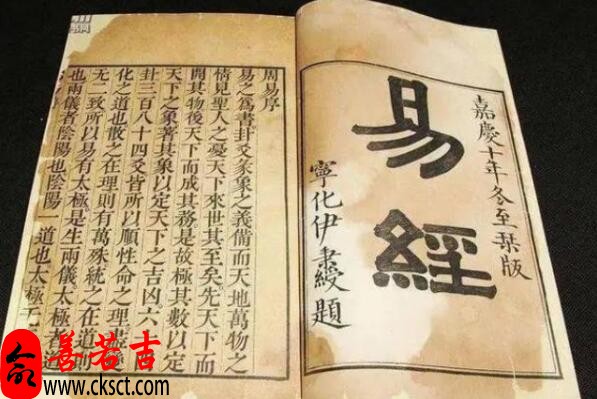 嘉慶十年冬至琹版
易
經
寧化伊秉綬題
周易序
易之爲書卦爻彖象之義備而天地萬物之
情見聖人之憂天下來世其至矣先天下而
開其物後天下而成其務是故極其數以定
天下之象著其象以定天下之吉凶六
卦三百八十四爻皆所以順性命之理盡
化之道也散之在理則有萬殊統之在道則
无二致所以易有太極是生兩儀太極者道
也兩儀者陰陽也陰陽一道也太極
善若吉
www.cksct.com